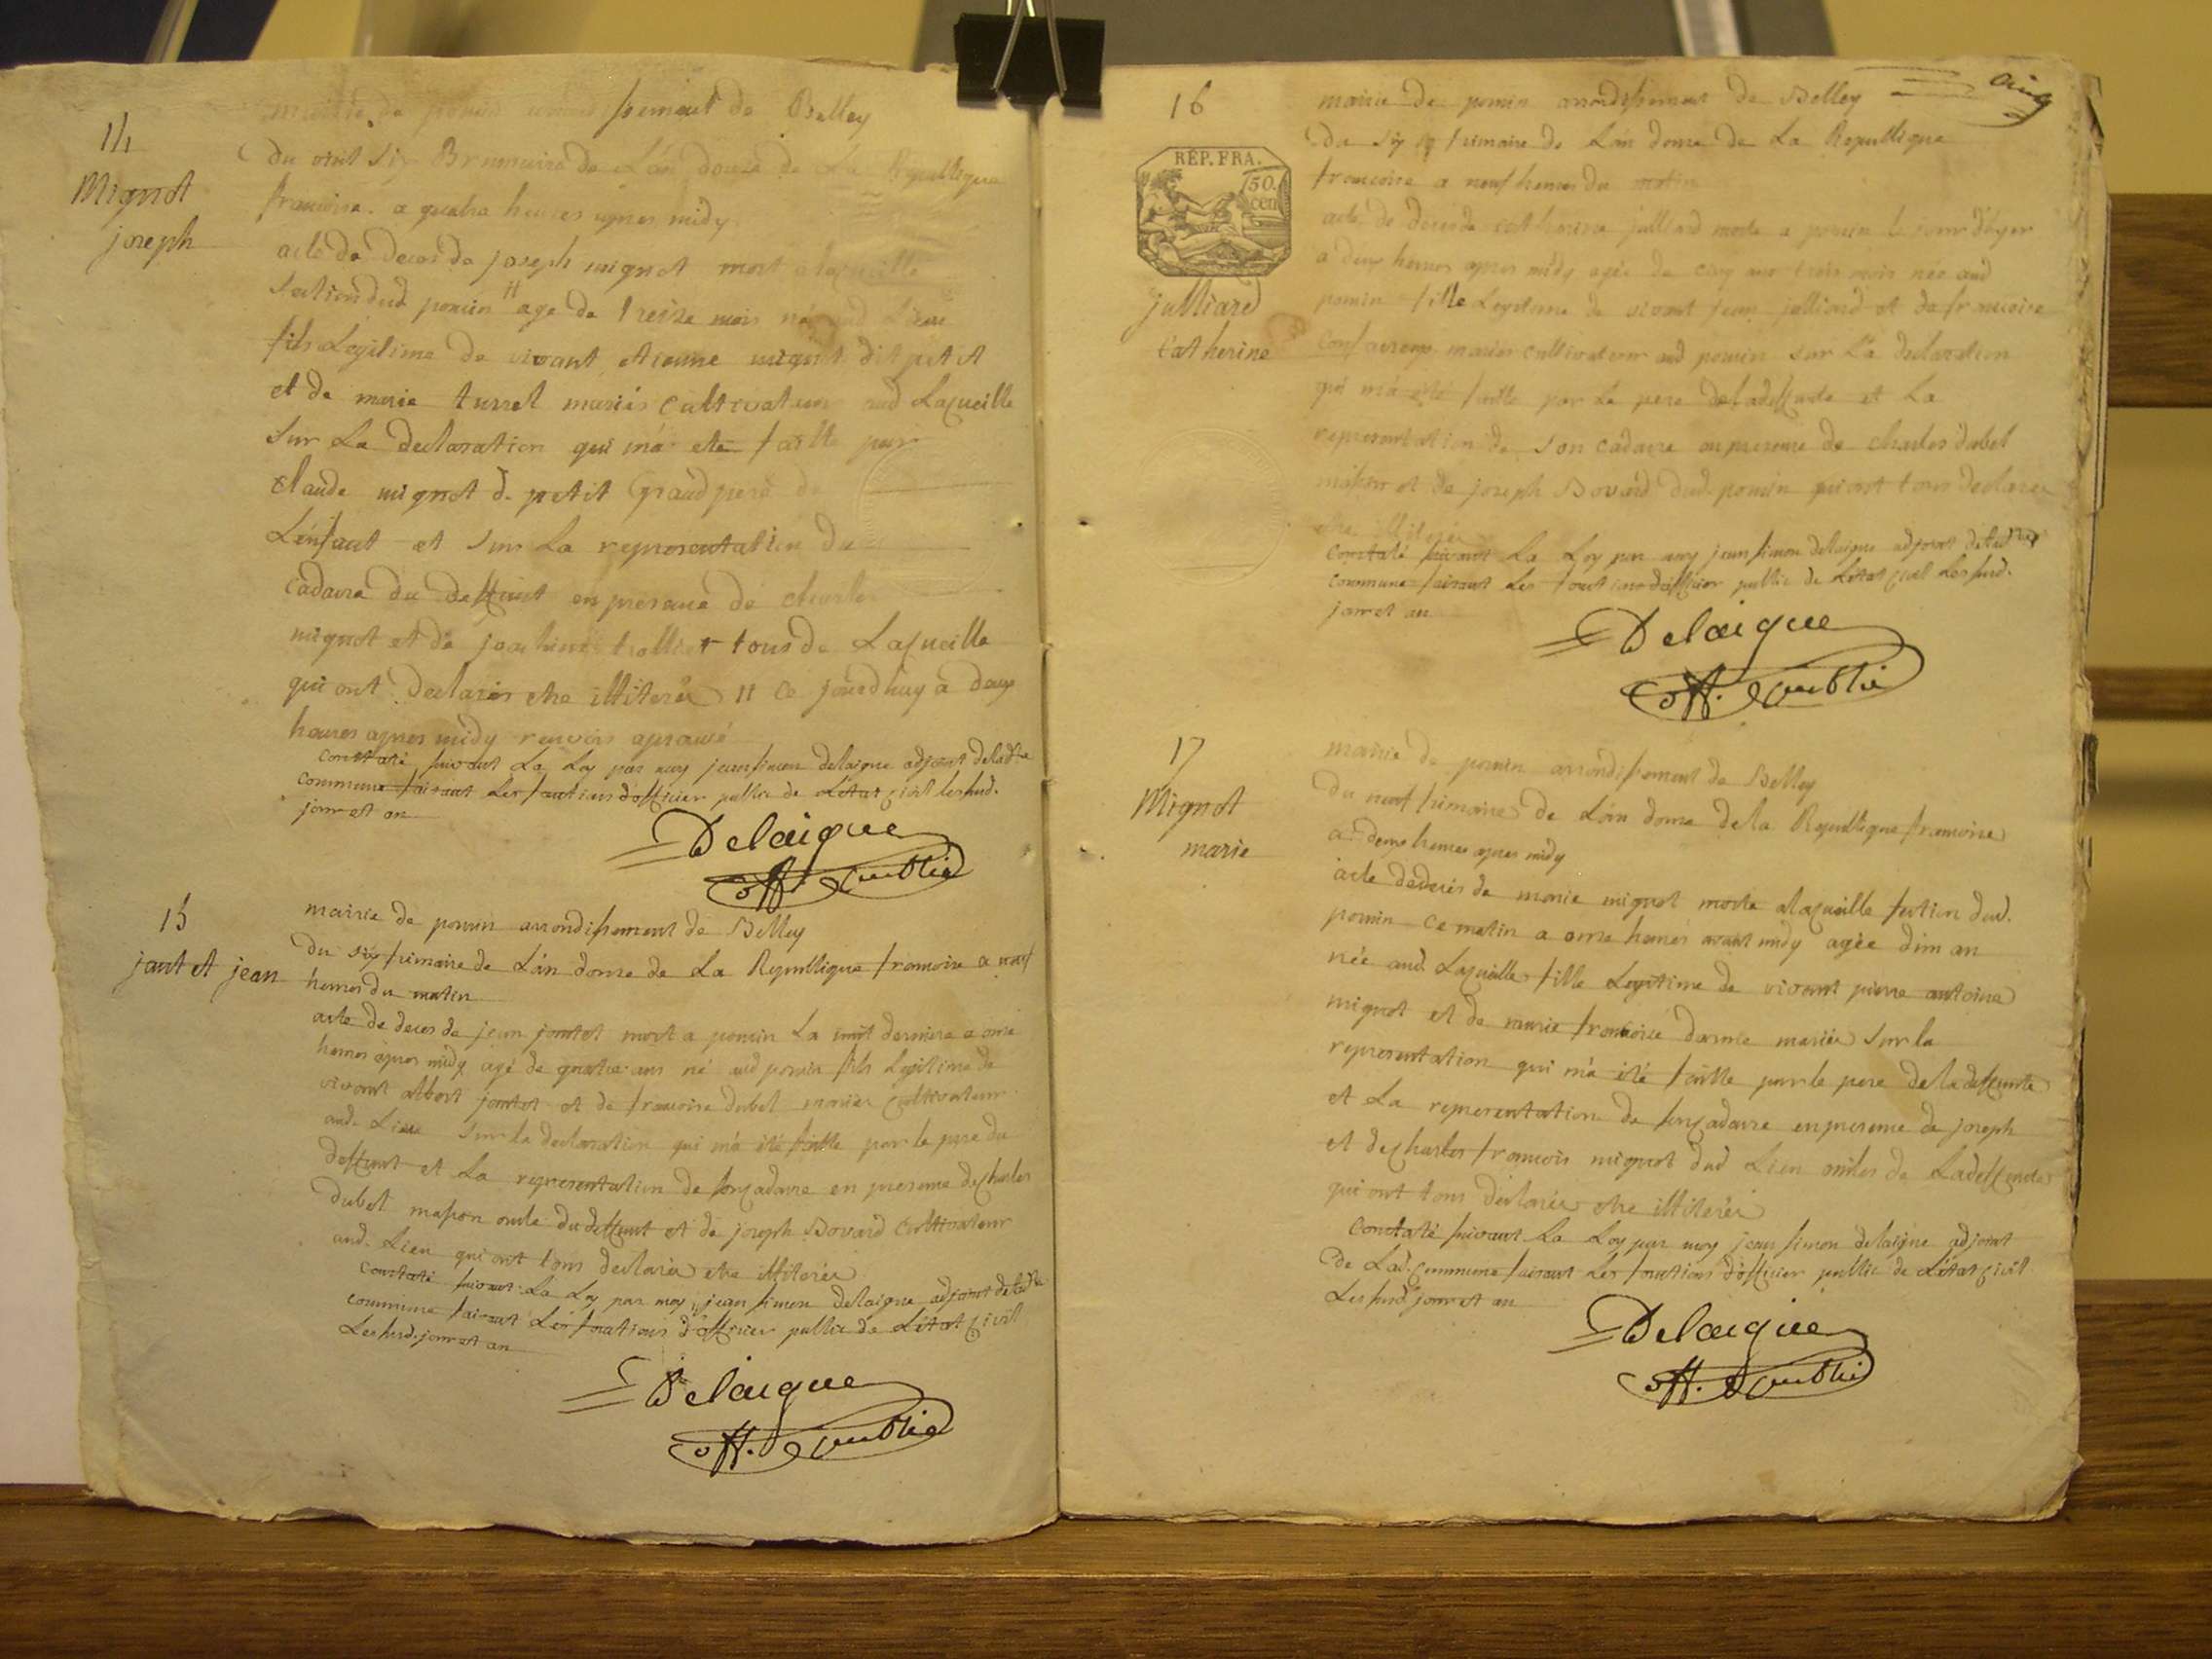 14
Mignot
joseph
mairie de pomin arrondissement de Belley
du vint six Brumaire de L'án douze de La Republique
francoise. a quatre heures apres midy
acte de deces de joseph mignot mort a lacueille
section dud pomin # age de treize mois né aud Lieu
fils Legitime de vivant etienne mignot dit petit
et de marie turrel mariés cultivateurs aud Lacueille
sur La declaration qui má eté faitte par
claude mignot d. petit Grand pere de
L'énfant et sur La representation du
cadavre du deffunt en presence de charles
mignot et de joachim trollier tous de Lacueille
qui ont declarés etre illiterés # ce jourdhuy a deux
heures apres midy renvois aprouvé
Constaté suivant La Loy par moy jean simon delaigue adjoint deladte
commune faisant Les fonctions d'officier public de L'état civil Les sud.
jour et an
Delaigue
off. public
15
jantet jean
mairie de pomin arrondissement de Belley
du six frimaire de L'án douze de La Republique francoise a neuf
heures du matin
acte de deces de jean jantet mort a pomin La nuit derniere a onze
heures apres midy agé de quatre ans né aud pomin fils Legitime de
vivant albert jantet et de francoise dubel mariés cultivateurs
aud. Lieu sur la declaration qui má été faitte par le pere du
deffunt et La representation de son cadavre en presence de charles
dubel masson oncle du deffunt et de joseph Bovard cultivateur
aud. Lieu qui ont tous declarés etre illiterés
Constaté suivant La Loy par moy jean simon delaigue adjoint deladte
commune faisant Les fonctions d'officier public de L'état civil
Les sud. jour et an
Delaigue
off. public
cinq
16
REP. FRA.
50.
cen
julliard
catherine
mairie de pomin arrondissement de Belley
du six frimaire de L'án douze de La Republique
francoise a neuf heures du matin
acte de deces de catherine julliard morte a pomin le jour d'hyer
a deux heures apres midy agée de cinq ans trois mois née aud
pomin fille Legitime de vivant jean julliard et de francoise
mariés cultivateurs aud pomin sur La declaration
qui má eté faitte par Le pere deladeffunte et La
representation de son cadavre en presence de charles dubel
et de joseph Bovard dud. pomin qui ont tous declarés
etre illiterés
Constaté suivant La Loy par moy jean simon delaigue adjoint deladte
commune faisant Les fonctions d'officier public de L'état civil Les sud.
jour et an
Delaigue
off. public
17
Mignot
marie
mairie de pomin arrondissement de Belley
du neuf frimaire de L'án douze de la Republique francoise
a deux heures apres midy
acte de deces de marie mignot morte a lacueille section dud.
pomin ce matin a onze heures avant midy agée d'un an
née aud. Lacueille fille Legitime de vivant pierre antoine
mignot et de marie francoise mariés sur la
representation qui má été faitte par le pere de la deffunte
et La representation de son cadavre en presence de joseph
et de charles francois mignot dud Lieu oncles de Ladeffunte
qui ont tous declarés etre illiterés
Constaté suivant La Loy par moy jean simon delaigue adjoint
de Lad. commune faisant Les fonctions d'officier public de L'état civil
Les sud. jour et an
Delaigue
off. public